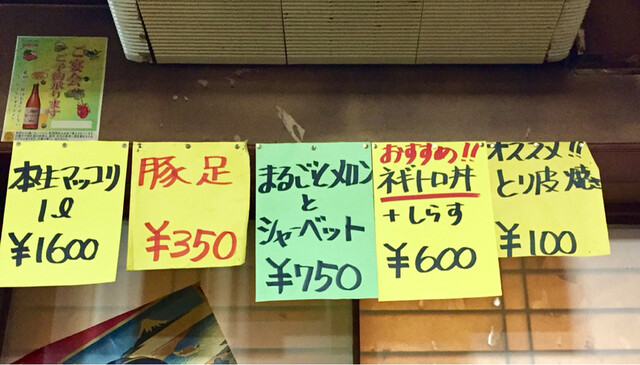 ご宴会
ご予約承ります
本生マッコリ
1ℓ
¥1600
豚足
¥350
まるごとメロン
と
シャーベット
¥750
おすすめ!!
ネギトロ丼
+しらす
¥600
オススメ!!
とり皮焼
¥100